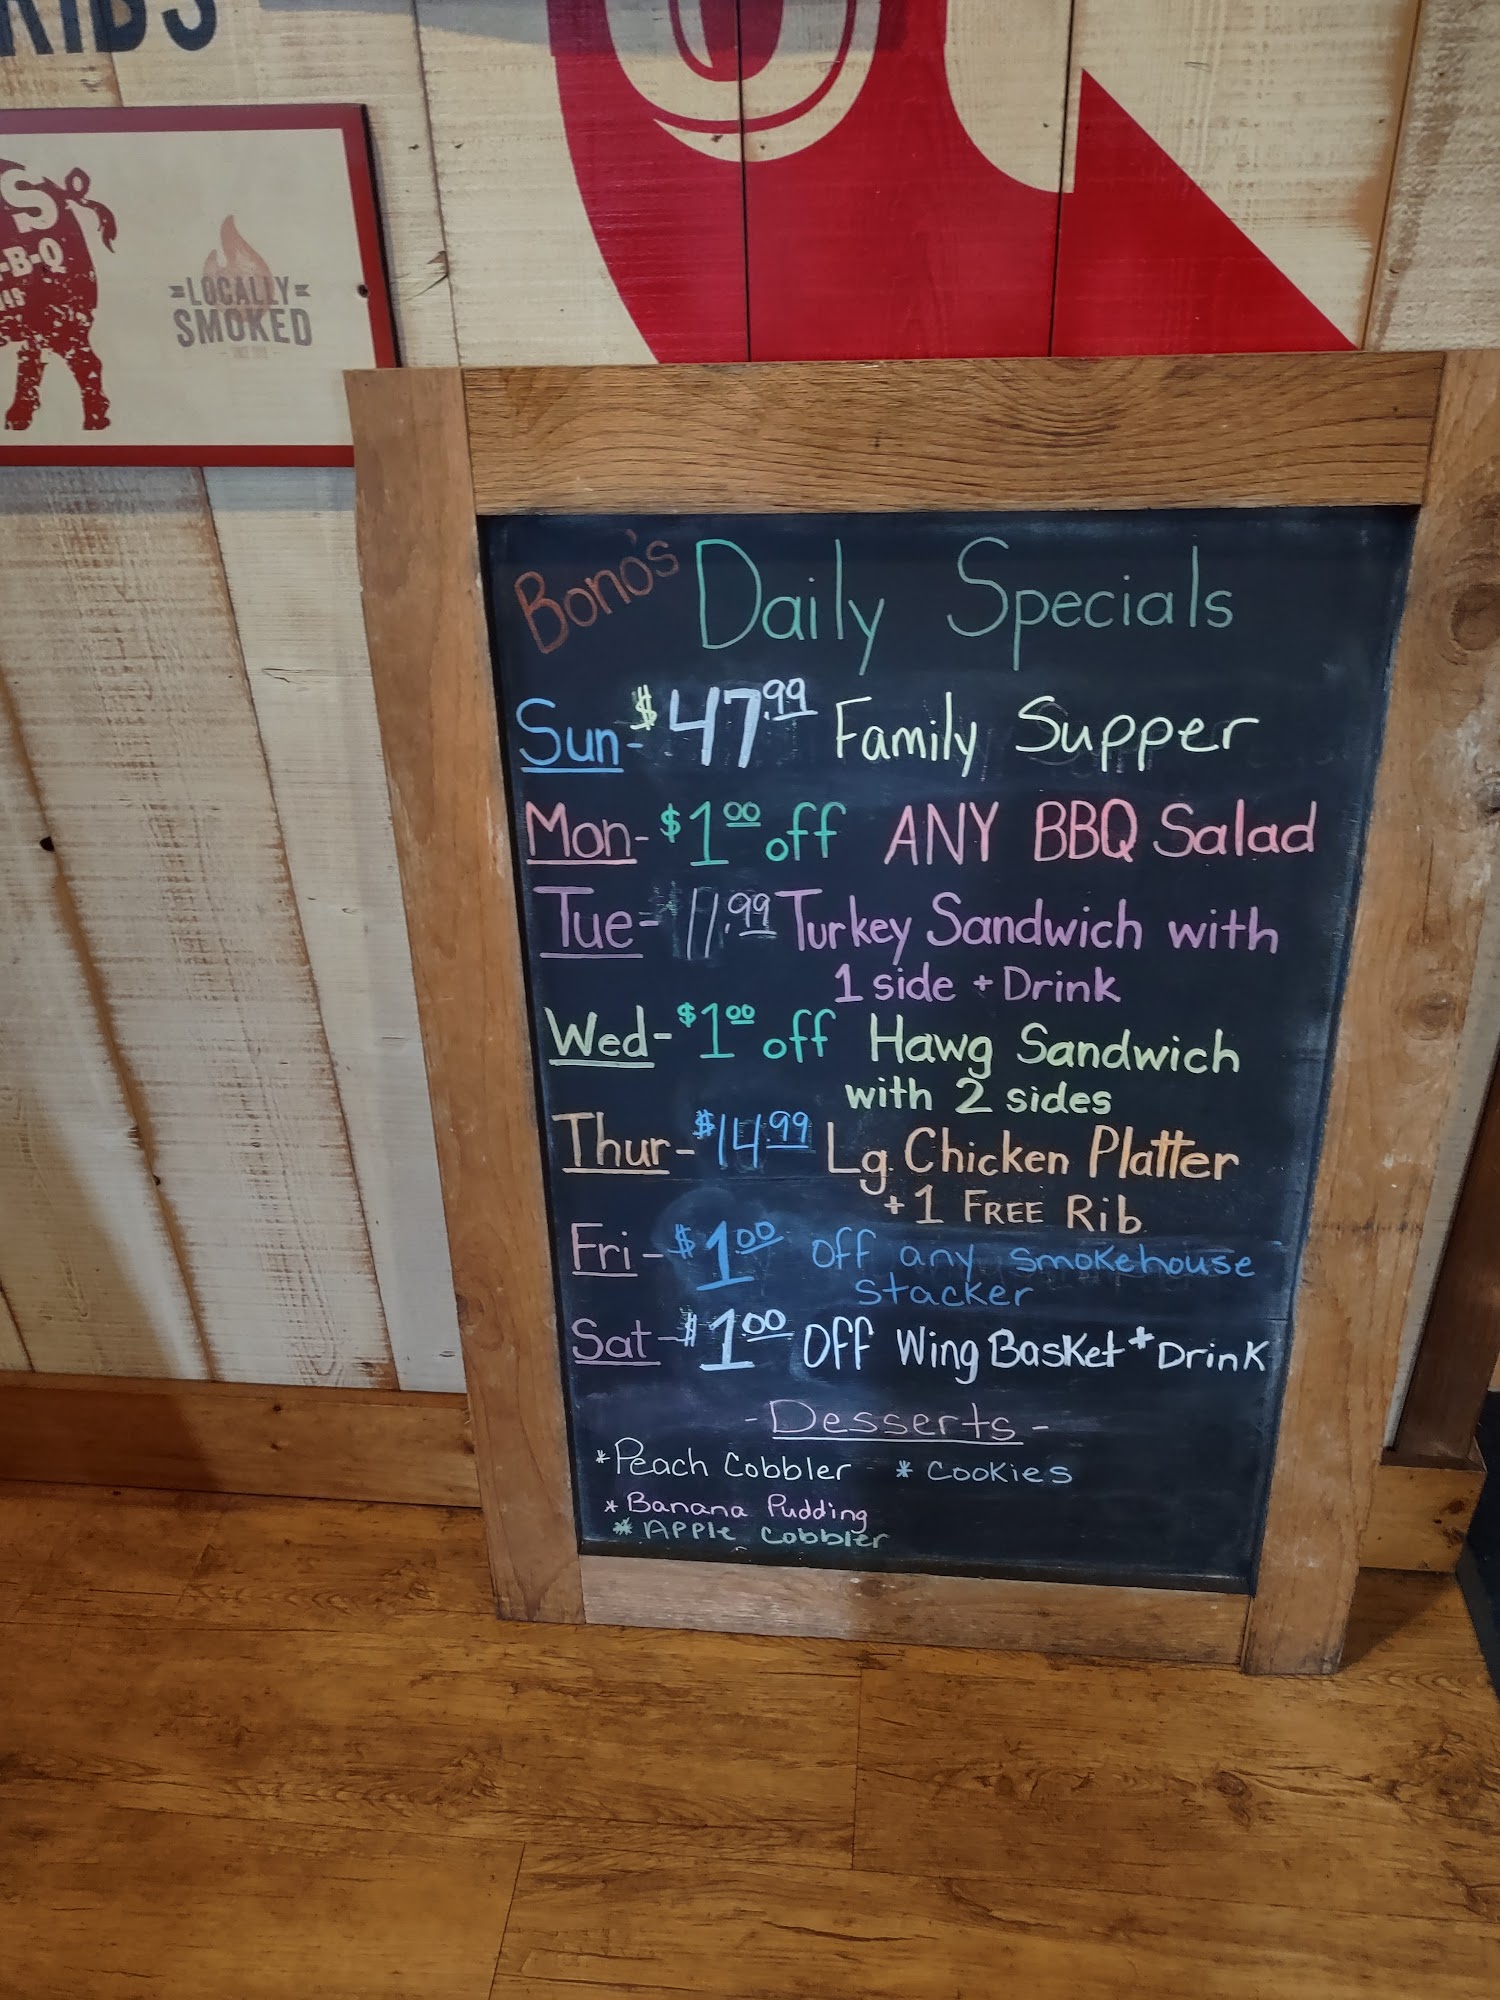 RIBS
S
-B-Q
LOCALLY
SMOKED
Bono's Daily Specials
Sun - $47.99 Family Supper
Mon - $1.00 off ANY BBQ Salad
Tue - 11.99 Turkey Sandwich with
1 side + Drink
Wed - $1.00 off Hawg Sandwich
with 2 sides
Thur - $14.99 Lg Chicken Platter
+ 1 FREE Rib
Fri - $1.00 off any smokehouse
stacker
Sat - $1.00 Off Wing Basket + Drink
- Desserts -
* Peach Cobbler * Cookies
* Banana Pudding
* Apple Cobbler